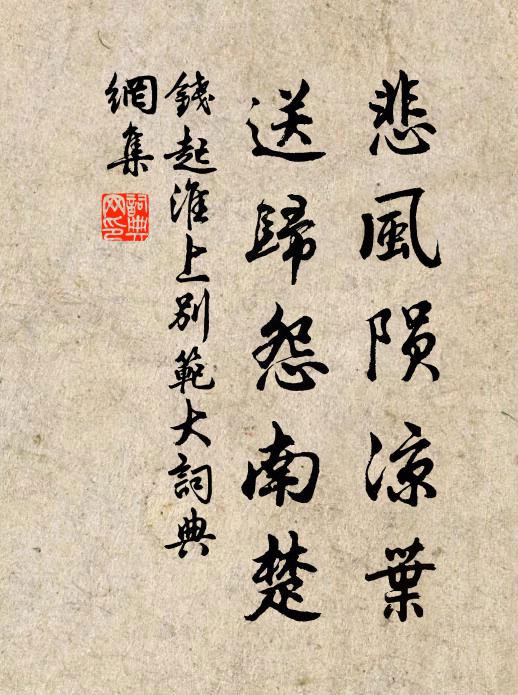 悲風隕凉葉
送歸怨南楚
錢起淮上别範大詞典
網集
詞典網印